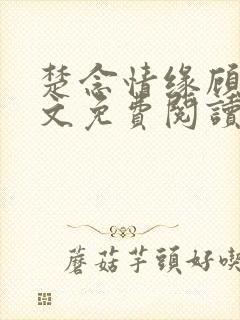 楚念情缘顾
文免費閱讀
蘑菇芋頭好喫